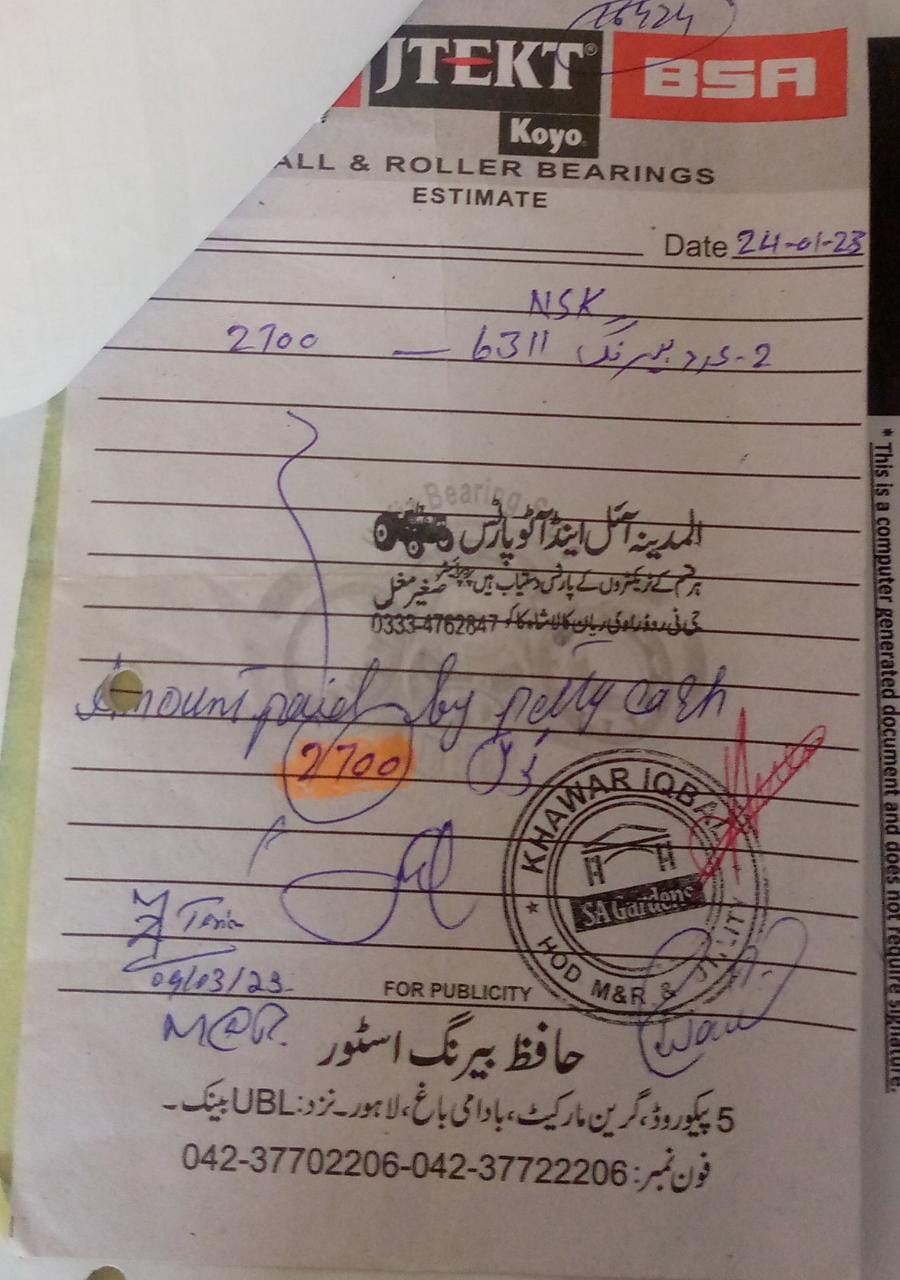 16424
JTEKT®
BSA
Koyo
ALL & ROLLER BEARINGS
ESTIMATE
Date 24-01-23
NSK
2-عدد بیرنگ 6311 — 2700
المدینہ آئل اینڈ آٹو پارٹس
ہر قسم کے ٹریکٹروں کے پارٹس دستیاب ہیں پروپرائیٹر صغیر مغل
جی ٹی روڈ راوی ریان کالا شاہ کاکو 0333-4762847
Amount paid by petty cash
2700
KHAWAR IQBAL
SA Gardens
HOD M&R & UTILITY
09/03/23
M@R
FOR PUBLICITY
حافظ بیرنگ اسٹور
5 پیکوروڈ، گرین مارکیٹ، بادامی باغ، لاہور۔نزد: UBL بینک۔
فون نمبر: 042-37722206-042-37702206
* This is a computer generated document and does not require signature.